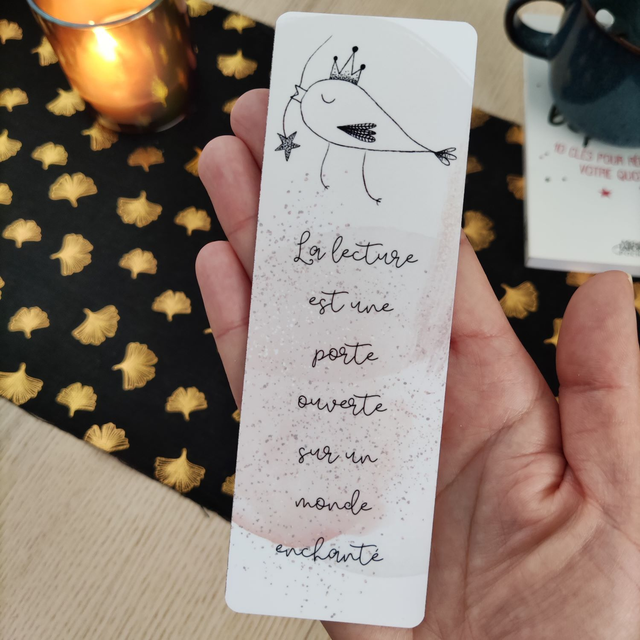 La lecture
est une
porte
ouverte
sur un
monde
enchanté
10 CLÉS POUR
VOTRE